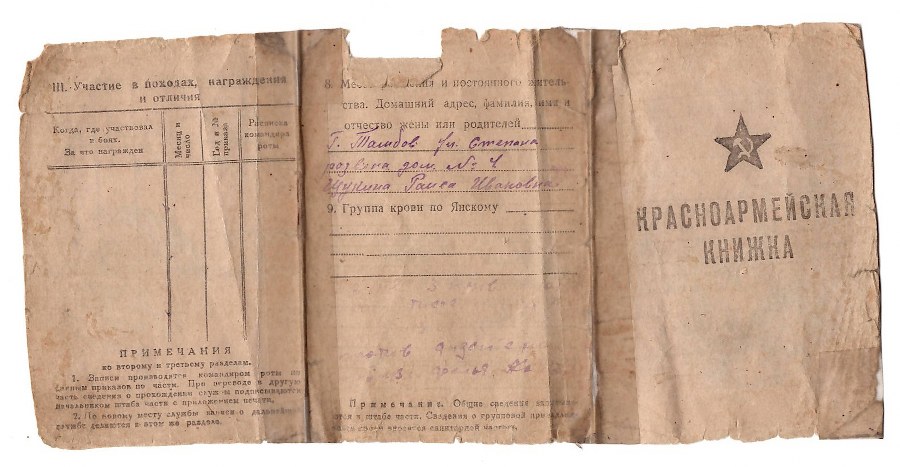 III. Участие в походах, награждения
и отличия
Когда, где участвовал
в боях.
За что награжден
Месяц и
число
Год и №
приказа
Расписка
командира
роты
ПРИМЕЧАНИЯ
ко второму и третьему разделам.
1. Записи производятся командиром роты по
приказов по части. При переводе в другую
часть сведения о прохождении служб подписываются
начальником штаба части с приложением печати.
2. По новому месту службы записи о дальнейшей
службе делаются в этом же разделе.
8. и постоянного житель-
ства. Домашний адрес, фамилия, имя и
отчество жены или родителей
г. Тамбов ул. Степана
дом № 4
Щукина Раиса Ивановна
9. Группа крови по Янскому
Примечание. Общие сведения
в штабе части. Сведения о групповой
крови вносятся санитарной частью.
КРАСНОАРМЕЙСКАЯ
КНИЖКА